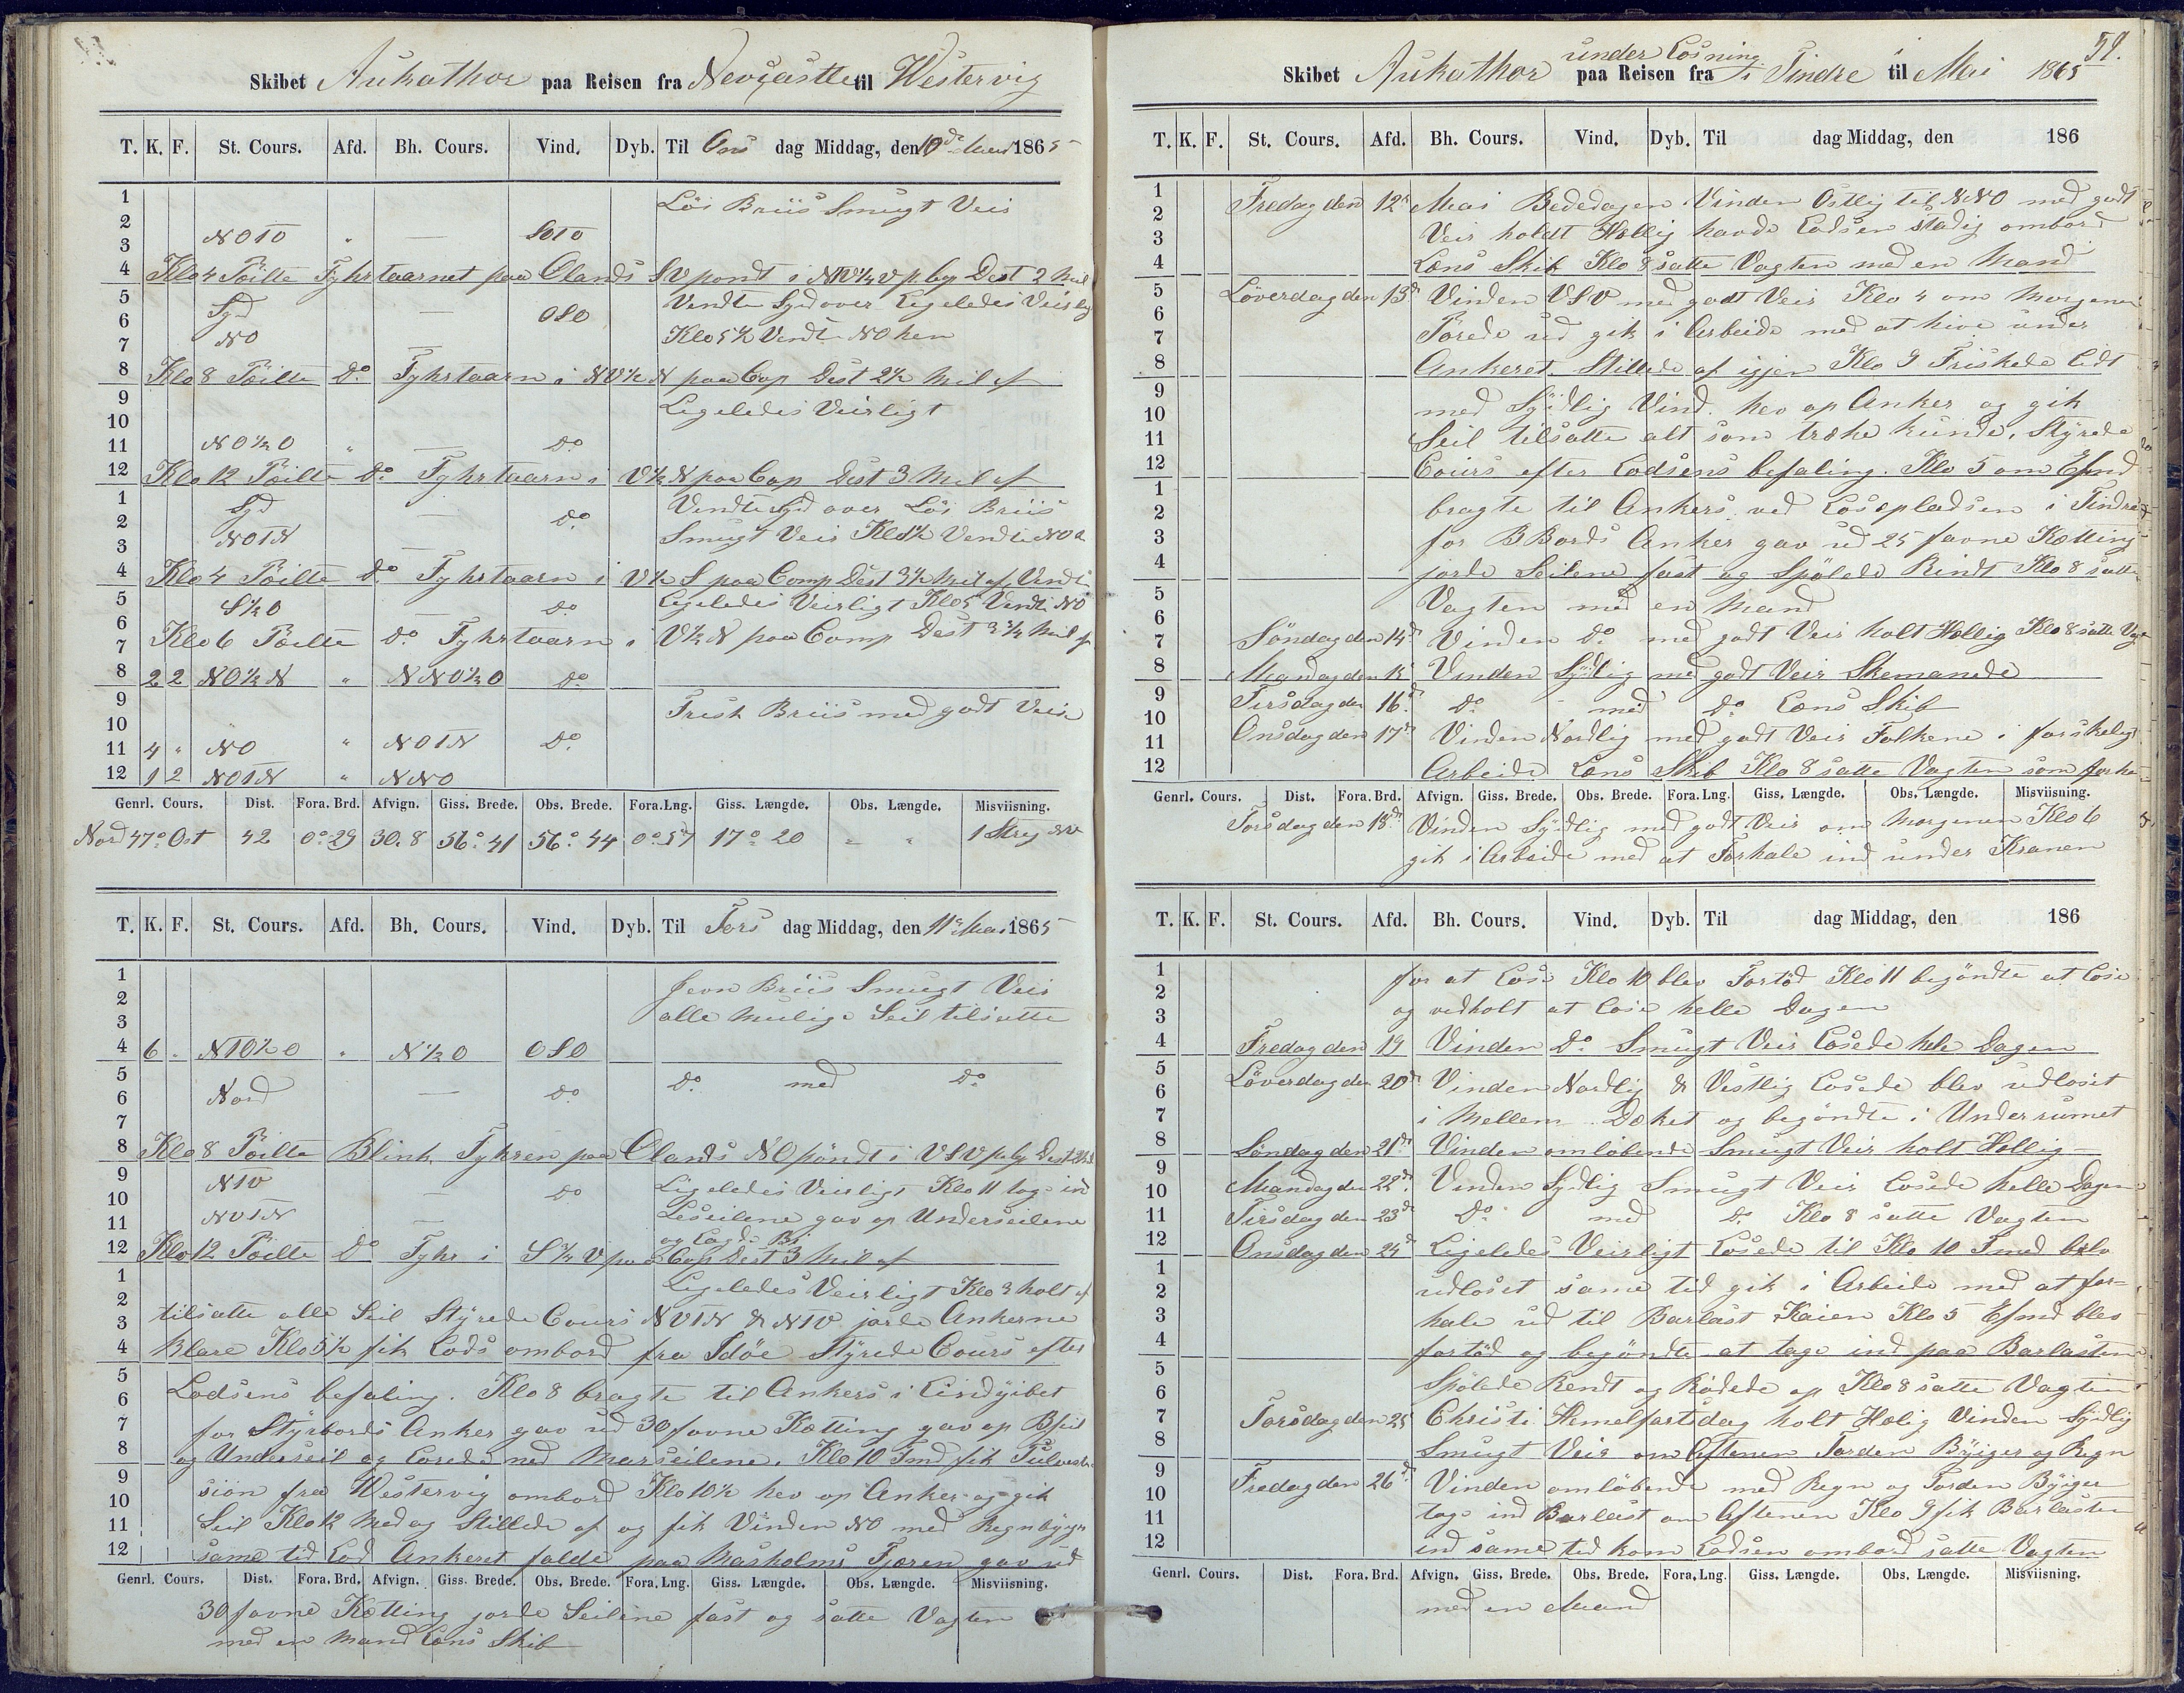 Skibet Aukathor paa Reisen fra Newcastle til Westervig
T. K. F. St. Cours. Afd. Bh. Cours. Vind. Dyb. Til Ons dag Middag, den 10de Mai 1865
1 Lös Briis Smugt Veir
2 NOTO " — SOTO
3
4 Klo 4 Pöilte Fyhrtaarnet paa Olands SV pondt i NV½V p. Cop Dest 2 Mil
5 Syd — OSO Vendte Syd over Ligeledes Veirlig
6 NO Klo 5½ Vendt NO hen
7
8 Klo 8 Pöilte Do Fyhrtaarn i NV½N paa Cop Dest 2½ Mil af
9 Ligeledes Veirligt
10
11 NO½O " — Do
12 Klo 12 Pöilte Do Fyhrtaarn i V½N paa Cop Dest 3 Mil af
1 Syd — Do Vendte Syd over Lös Briis
2 NOTN — Smugt Veir Klo 1½ Vendte NO
3
4 Klo 4 Pöilte Do Fyhrtaarn i V½S paa Comp Dest 3½ Mil af Vendte
5 S½O — Do Ligeledes Veirligt Klo 5 Vendte NO
6
7 Klo 6 Pöilte Do Fyhrtaarn i V½N paa Comp Dest 3¾ Mil af
8 2 2 NO½N " NNO½O Do
9 Frisk Briis med godt Veir
10
11 4 " NO " NOTN Do
12 1 2 NOTN " NNO
Genrl. Cours. Dist. Fora. Brd. Afvign. Giss. Brede. Obs. Brede. Fora. Lng. Giss. Længde. Obs. Længde. Misviisning.
Nord 47° Ost 42 0°29 30.8 56°41 56°44 0°57 17°20 " " 1 Streg NV
T. K. F. St. Cours. Afd. Bh. Cours. Vind. Dyb. Til Tors dag Middag, den 11te Mai 1865
1 Jevn Briis Smugt Veir
2 alle mulige Seil tilsatte
3
4 6 " NTO½O " N½O OSO
5 Do med Do
6 Nord — Do
7
8 Klo 8 Pöilte Blink Fyhren paa Olands NO pöndt i VSV p. Cop Dest
9 NTV — Do Ligeledes Veirligt Klo 11 tog ind
10 NVTN — Leseilene gav op Underseilene
11 og Lagde Bi
12 Klo 12 Pöilte Do Fyhr i S¾V paa Cop Dest 3 Mil af
1 Ligeledes Veirligt Klo 3 holt af
2 tilsatte alle Seil Styrede Cours NVTN & NTV jorde Ankerne
3
4 Klare Klo 5½ fik Lods ombord fra Idöe Styrede Cours efter
5 Lodsens befaling. Klo 8 bragte til Ankers i Lindyibet
6
7 for Styrbords Anker gav ud 30 favne Kætting gav op Bseil
8 og Underseil og Lorede ned Marseilene. Klo 10 Fmd fik
9 siön fra Westervig ombord Klo 10½ hev op Anker og gik
10
11 Seil Klo 12 Medag Stillede af og fik Vinden NO med Regnbyger
12 same tid Lod Ankeret falde paa Masholms Fjæren gav ud
Genrl. Cours. Dist. Fora. Brd. Afvign. Giss. Brede. Obs. Brede. Fora. Lng. Giss. Længde. Obs. Længde. Misviisning.
30 favne Kætting jorde Seilene fast og satte Vagten
med en Mand Lens Skib
59.
under Losning
Skibet Aukathor paa Reisen fra i Tindre til Mai 1865
T. K. F. St. Cours. Afd. Bh. Cours. Vind. Dyb. Til dag Middag, den 186
1 Fredag den 12te Mai Bededagen Vinden Ostlig til NNO med godt
2
3 Veir holdt Hellig havde Lodsen stadig ombord
4 Lens Skib Klo 8 satte Vagten med en Mand
5 Löverdag den 13de Vinden VSV med godt Veir Klo 4 om Morgenen
6
7 Pörede ud gik i Arbeide med at hive under
8 Ankeret. Stillede af igjen Klo 9 Friskede lidt
9
10 med Sydlig Vind. hev op Anker og gik
11 Seil tilsatte alt som træke kunde. Styrede
12 Cours efter Lodsens befaling. Klo 5 om Efmd
1
2 bragte til Ankers ved Losepladsen i Tindre
3 for BBords Anker gav ud 25 favne Kætting
4 jorde Seilene fast og Spölede Rindt Klo 8 satte
5 Vagten med en Mand
6
7 Söndag den 14de Vinden Do med godt Veir holt Hellig Klo 8 satte Vagt
8 Mandag den 15 Vinden Sydlig med godt Veir Skemanede
9 Tirsdag den 16de Do med Do Lens Skib
10
11 Onsdag den 17de Vinden Nordlig med godt Veir Folkene i forskeligt
12 Arbeide Lens Skib Klo 8 satte Vagten som för
Genrl. Cours. Dist. Fora. Brd. Afvign. Giss. Brede. Obs. Brede. Fora. Lng. Giss. Længde. Obs. Længde. Misviisning.
Torsdag den 18de Vinden Sydlig med godt Veir om Morgenen Klo 6
gik i Arbeide med at Forhale ind under Kranen
T. K. F. St. Cours. Afd. Bh. Cours. Vind. Dyb. Til dag Middag, den 186
1 for at Lose Klo 10 blev Fortöd Klo 11 begöndte at Lose
2
3 og vedholt at Lose helle Dagen
4 Fredag den 19 Vinden Do Smugt Veir Losede hele Dagen
5
6 Löverdag den 20de Vinden Nordlig & Vestlig Losede blev udloset
7 i Mellem Deket og begöndte i Underrumet
8 Söndag den 21de Vinden omlöbende Smugt Veir holt Hellig
9
10 Mandag den 22de Vinden Sydlig Smugt Veir Losede helle Dagen
11 Tirsdag den 23de Do med Do Klo 8 satte Vagten
12 Onsdag den 24de Ligeledes Veirligt Losede til Klo 10 Fmed blev
1
2 udloset same tid gik i Arbeide med at for-
3 hale ud til Barlast Kaien Klo 5 Efmd blev
4 fortöd og begöndte at tage ind paa Barlasten
5
6 Spölede Rendt og Rödede op Klo 8 satte Vagten
7 Torsdag den 25 Christi Hemelfartsdag holt Helig Vinden Sydlig
8 Smugt Veir om Aftenen Torden Byiger og Regn
9
10 Fredag den 26de Vinden omlöbende med Regn og Torden Byiger
11 tog ind Barlast om Aftenen Klo 9 fik Barlasten
12 ind same tid kom Lodsen ombord satte Vagten
Genrl. Cours. Dist. Fora. Brd. Afvign. Giss. Brede. Obs. Brede. Fora. Lng. Giss. Længde. Obs. Længde. Misviisning.
med en Mand